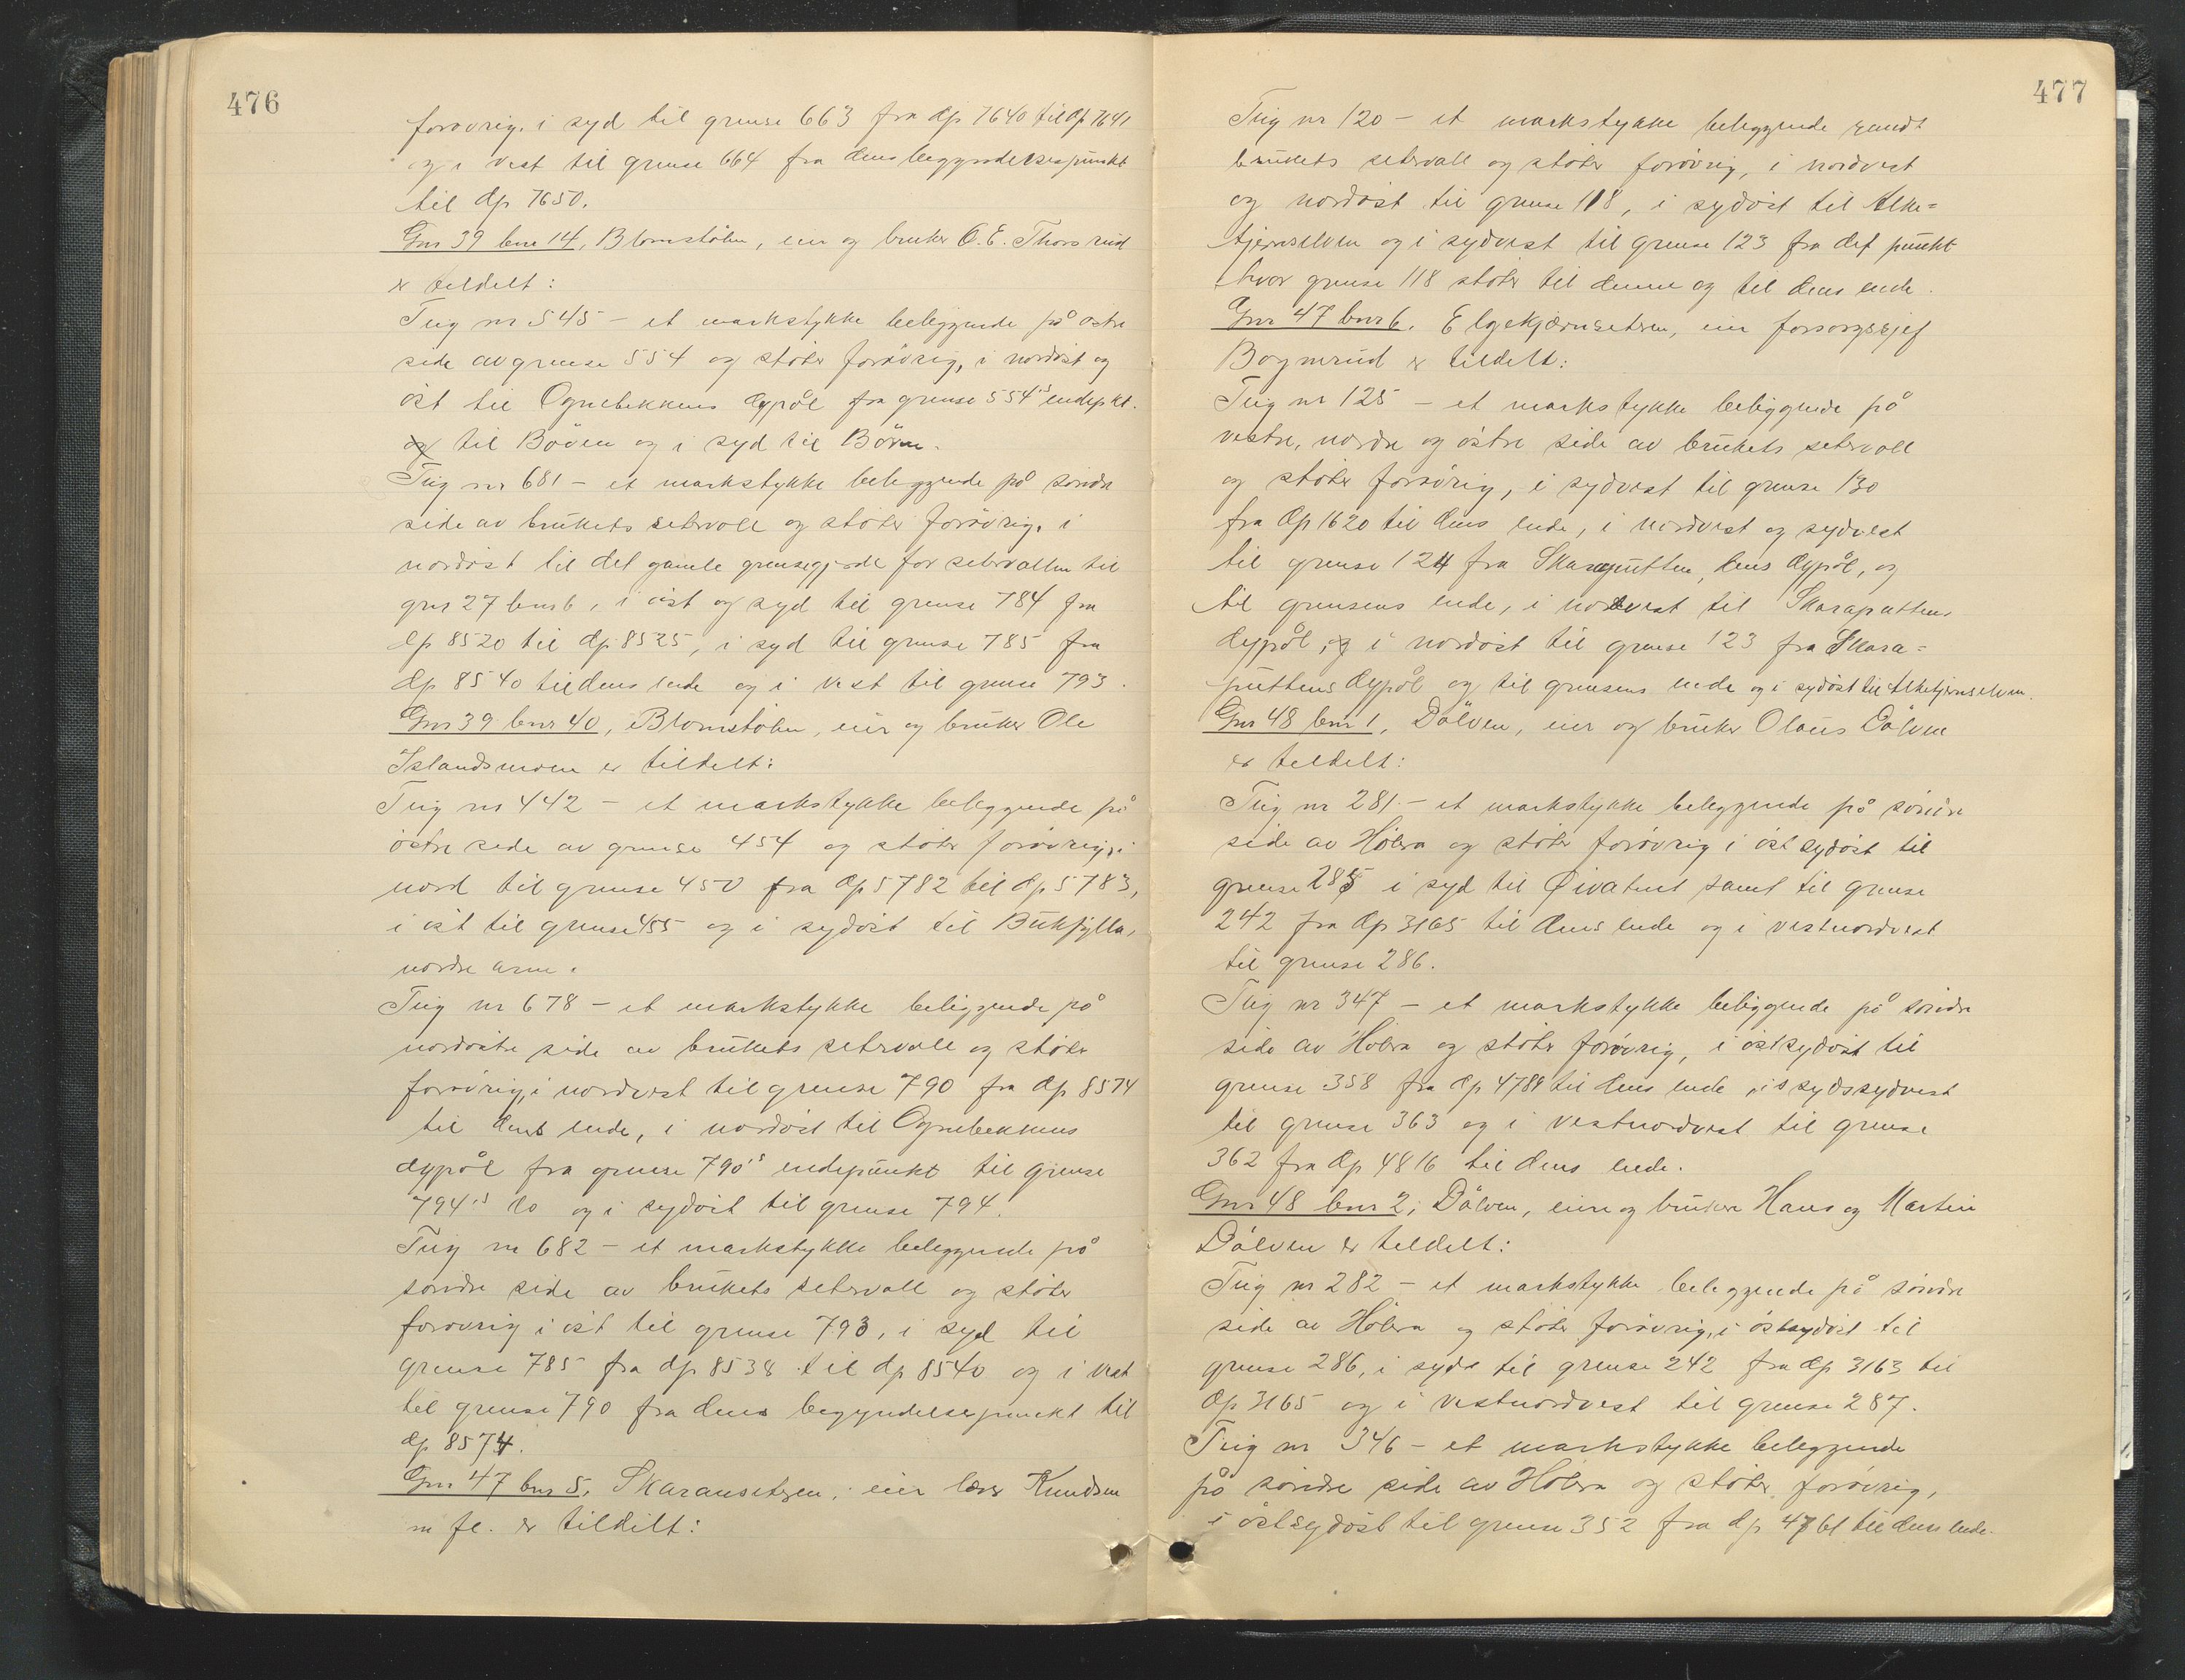 476
forøvrig, i syd til grense 663 fra dp 7640 til dp 7641
og i vest til grense 664 fra dens begyndelsespunkt
til dp 7650.
Gnr 39 bnr 14, Blomstølen, eier og bruker O. E. Thorsrud
er tildelt:
Teig nr 545 – et markstykke beliggende på østre
side av grense 554 og støter forøvrig, i nordøst og
øst til Ognebekkens dypål fra grense 554's endepkt.
og til Bøven og i syd til Bøven.
Teig nr 681 – et markstykke beliggende på søndre
side av brukets setervoll og støter forøvrig, i
nordøst til det gamle grensegjerde for setervollen til
gnr 27 bnr 6, i øst og syd til grense 784 fra
dp 8520 til dp 8525, i syd til grense 785 fra
dp 8540 til dens ende og i vest til grense 793.
Gnr 39 bnr 40, Blomstølen, eier og bruker Ole
Islandsmoen er tildelt:
Teig nr 442 – et markstykke beliggende på
østre side av grense 454 og støter forøvrig, i
nord til grense 450 fra dp 5782 til dp 5783,
i øst til grense 455 og i sydøst til Bukfylla,
nordre arm.
Teig nr 678 – et markstykke beliggende på
nordøstre side av brukets setervoll og støter
forøvrig, i nordvest til grense 790 fra dp 8574
til dens ende, i nordøst til Ognebekkens
dypål fra grense 790's endepunkt til grense
794's do og i sydøst til grense 794.
Teig nr 682 – et markstykke beliggende på
søndre side av brukets setervoll og støter
forøvrig i øst til grense 793, i syd til
grense 785 fra dp 8538 til dp 8540 og i vest
til grense 790 fra dens begyndelsespunkt til
dp 8574.
Gnr 47 bnr 5, Skaransetren, eier lærer Knudsen
m fl. er tildelt:
477
Teig nr 120 – et markstykke beliggende rundt
brukets setervoll og støter forøvrig, i nordvest
og nordøst til grense 118, i sydøst til Elke=
tjernselven og i sydvest til grense 123 fra det punkt
hvor grense 118 støter til denne og til dens ende.
Gnr 47 bnr 6. Elgekjernsetren, eier forsorgssjef
Bognerud er tildelt:
Teig nr 125 – et markstykke beliggende på
vestre, nordre og østre side av brukets setervoll
og støter forøvrig, i sydvest til grense 130
fra dp 1620 til dens ende, i nordvest og sydvest
til grense 124 fra Skaraputten, dens dypål, og
til grensens ende, i nordvest til Skaraputtens
dypål, og i nordøst til grense 123 fra Skara=
puttens dypål og til grensens ende og i sydøst til Elketjernselven.
Gnr 48 bnr 1, Dålven, eier og bruker Olaus Dålven
er tildelt:
Teig nr 281 – et markstykke beliggende på søndre
side av Hølera og støter forøvrig i østsydøst til
grense 285 i syd til Øivatnet samt til grense
242 fra dp 3165 til dens ende og i vestnordvest
til grense 286.
Teig nr 347 – et markstykke beliggende på søndre
side av Hølera og støter forøvrig, i østsydøst til
grense 358 fra dp 4789 til dens ende, i sydsydvest
til grense 363 og i vestnordvest til grense
362 fra dp 4816 til dens ende.
Gnr 48 bnr 2, Dålven, eiere og brukere Hans og Martin
Dålven er tildelt:
Teig nr 282 – et markstykke beliggende på søndre
side av Hølera og støter forøvrig, i østsydøst til
grense 286, i syd til grense 242 fra dp 3163 til
dp 3165 og i vestnordvest til grense 287.
Teig nr 346 – et markstykke beliggende
på søndre side av Hølera og støter forøvrig,
i østsydøst til grense 352 fra dp 4761 til dens ende.